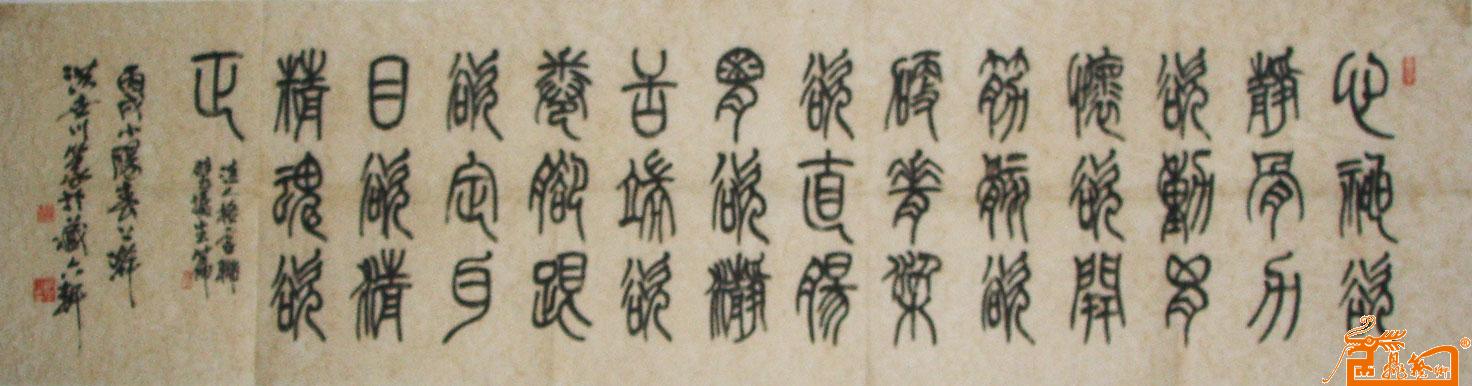 心神欲
靜骨力
欲動胸
懷欲開
筋骸欲
硬脊梁
欲直腸
胃欲瀞
舌端欲
卷腳跟
欲定耳
目欲清
精魂欲
正
清人格言聯
璧攝生篇
丙戌小陽春上澣
川篆於藏六軒